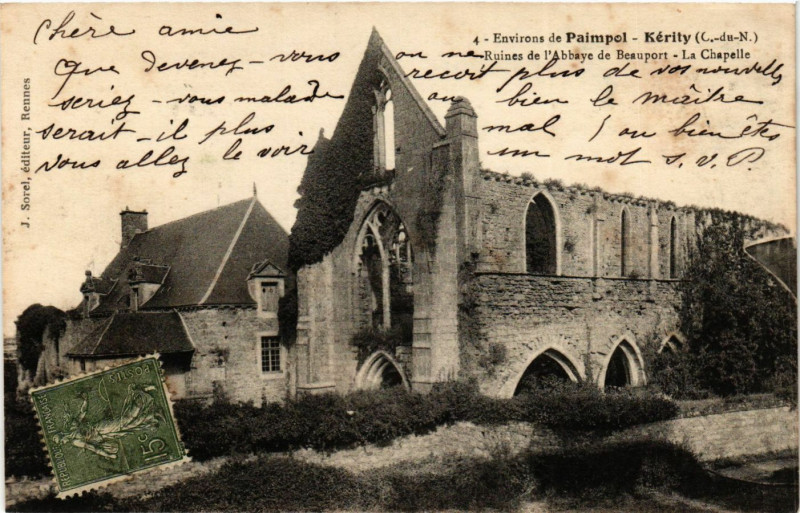 4 - Environs de Paimpol - Kérity (C.-du-N.)
Ruines de l'Abbaye de Beauport - La Chapelle
J. Sorel, éditeur, Rennes
Chère amie
Que devenez-vous on ne reçoit plus de vos nouvelles
seriez-vous malade ou bien le maître
serait-il plus mal, ou bien êtes
vous allez le voir un mot s.v.P.
POSTES
15c